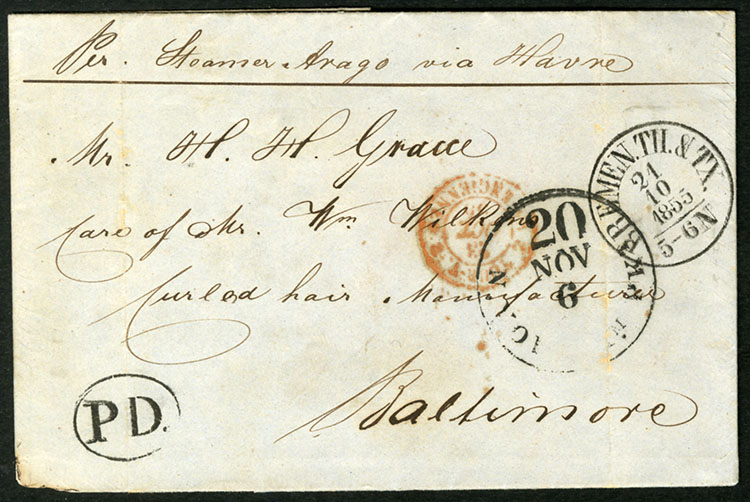 Per. Steamer Arago via Havre
Mr. H. H. Grace
Care of Mr. Wm Wilkens
Curled hair Manufacturer
Baltimore
BREMEN. TH. & TX.
21
10
1855
5-6 N
20
NOV
6
P D.